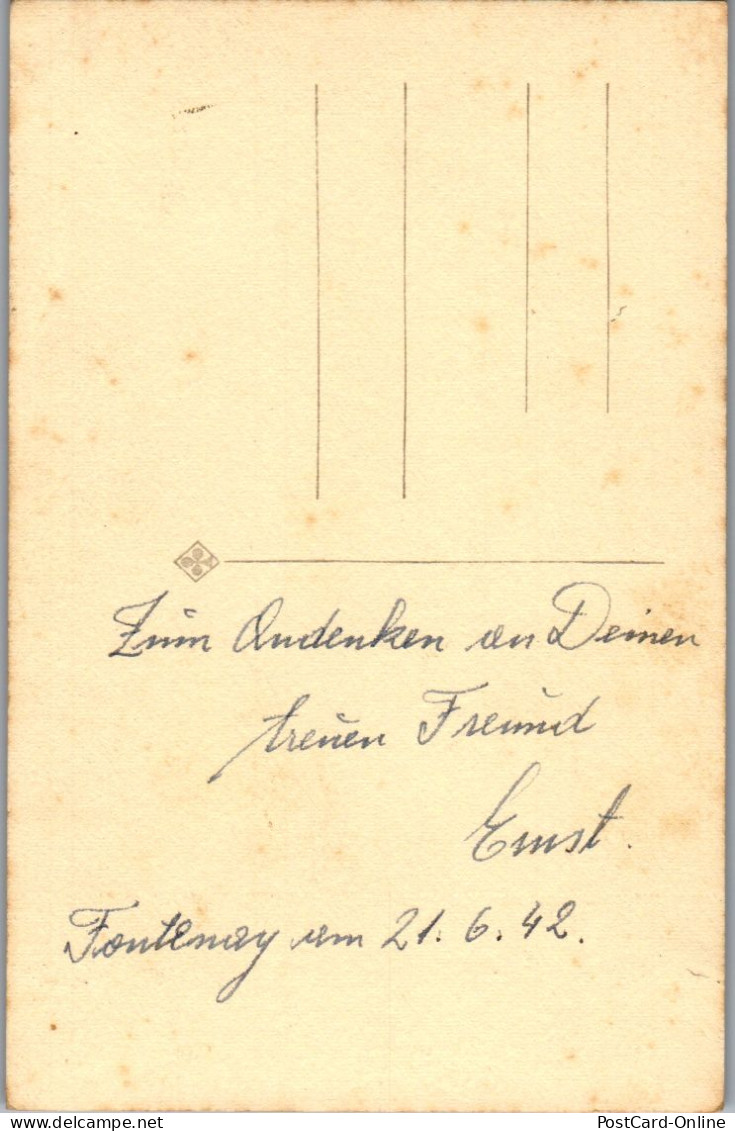 Zum Andenken an Deinen
treuen Freund
Ernst.
Fontenay am 21. 6. 42.
PostCard-Online